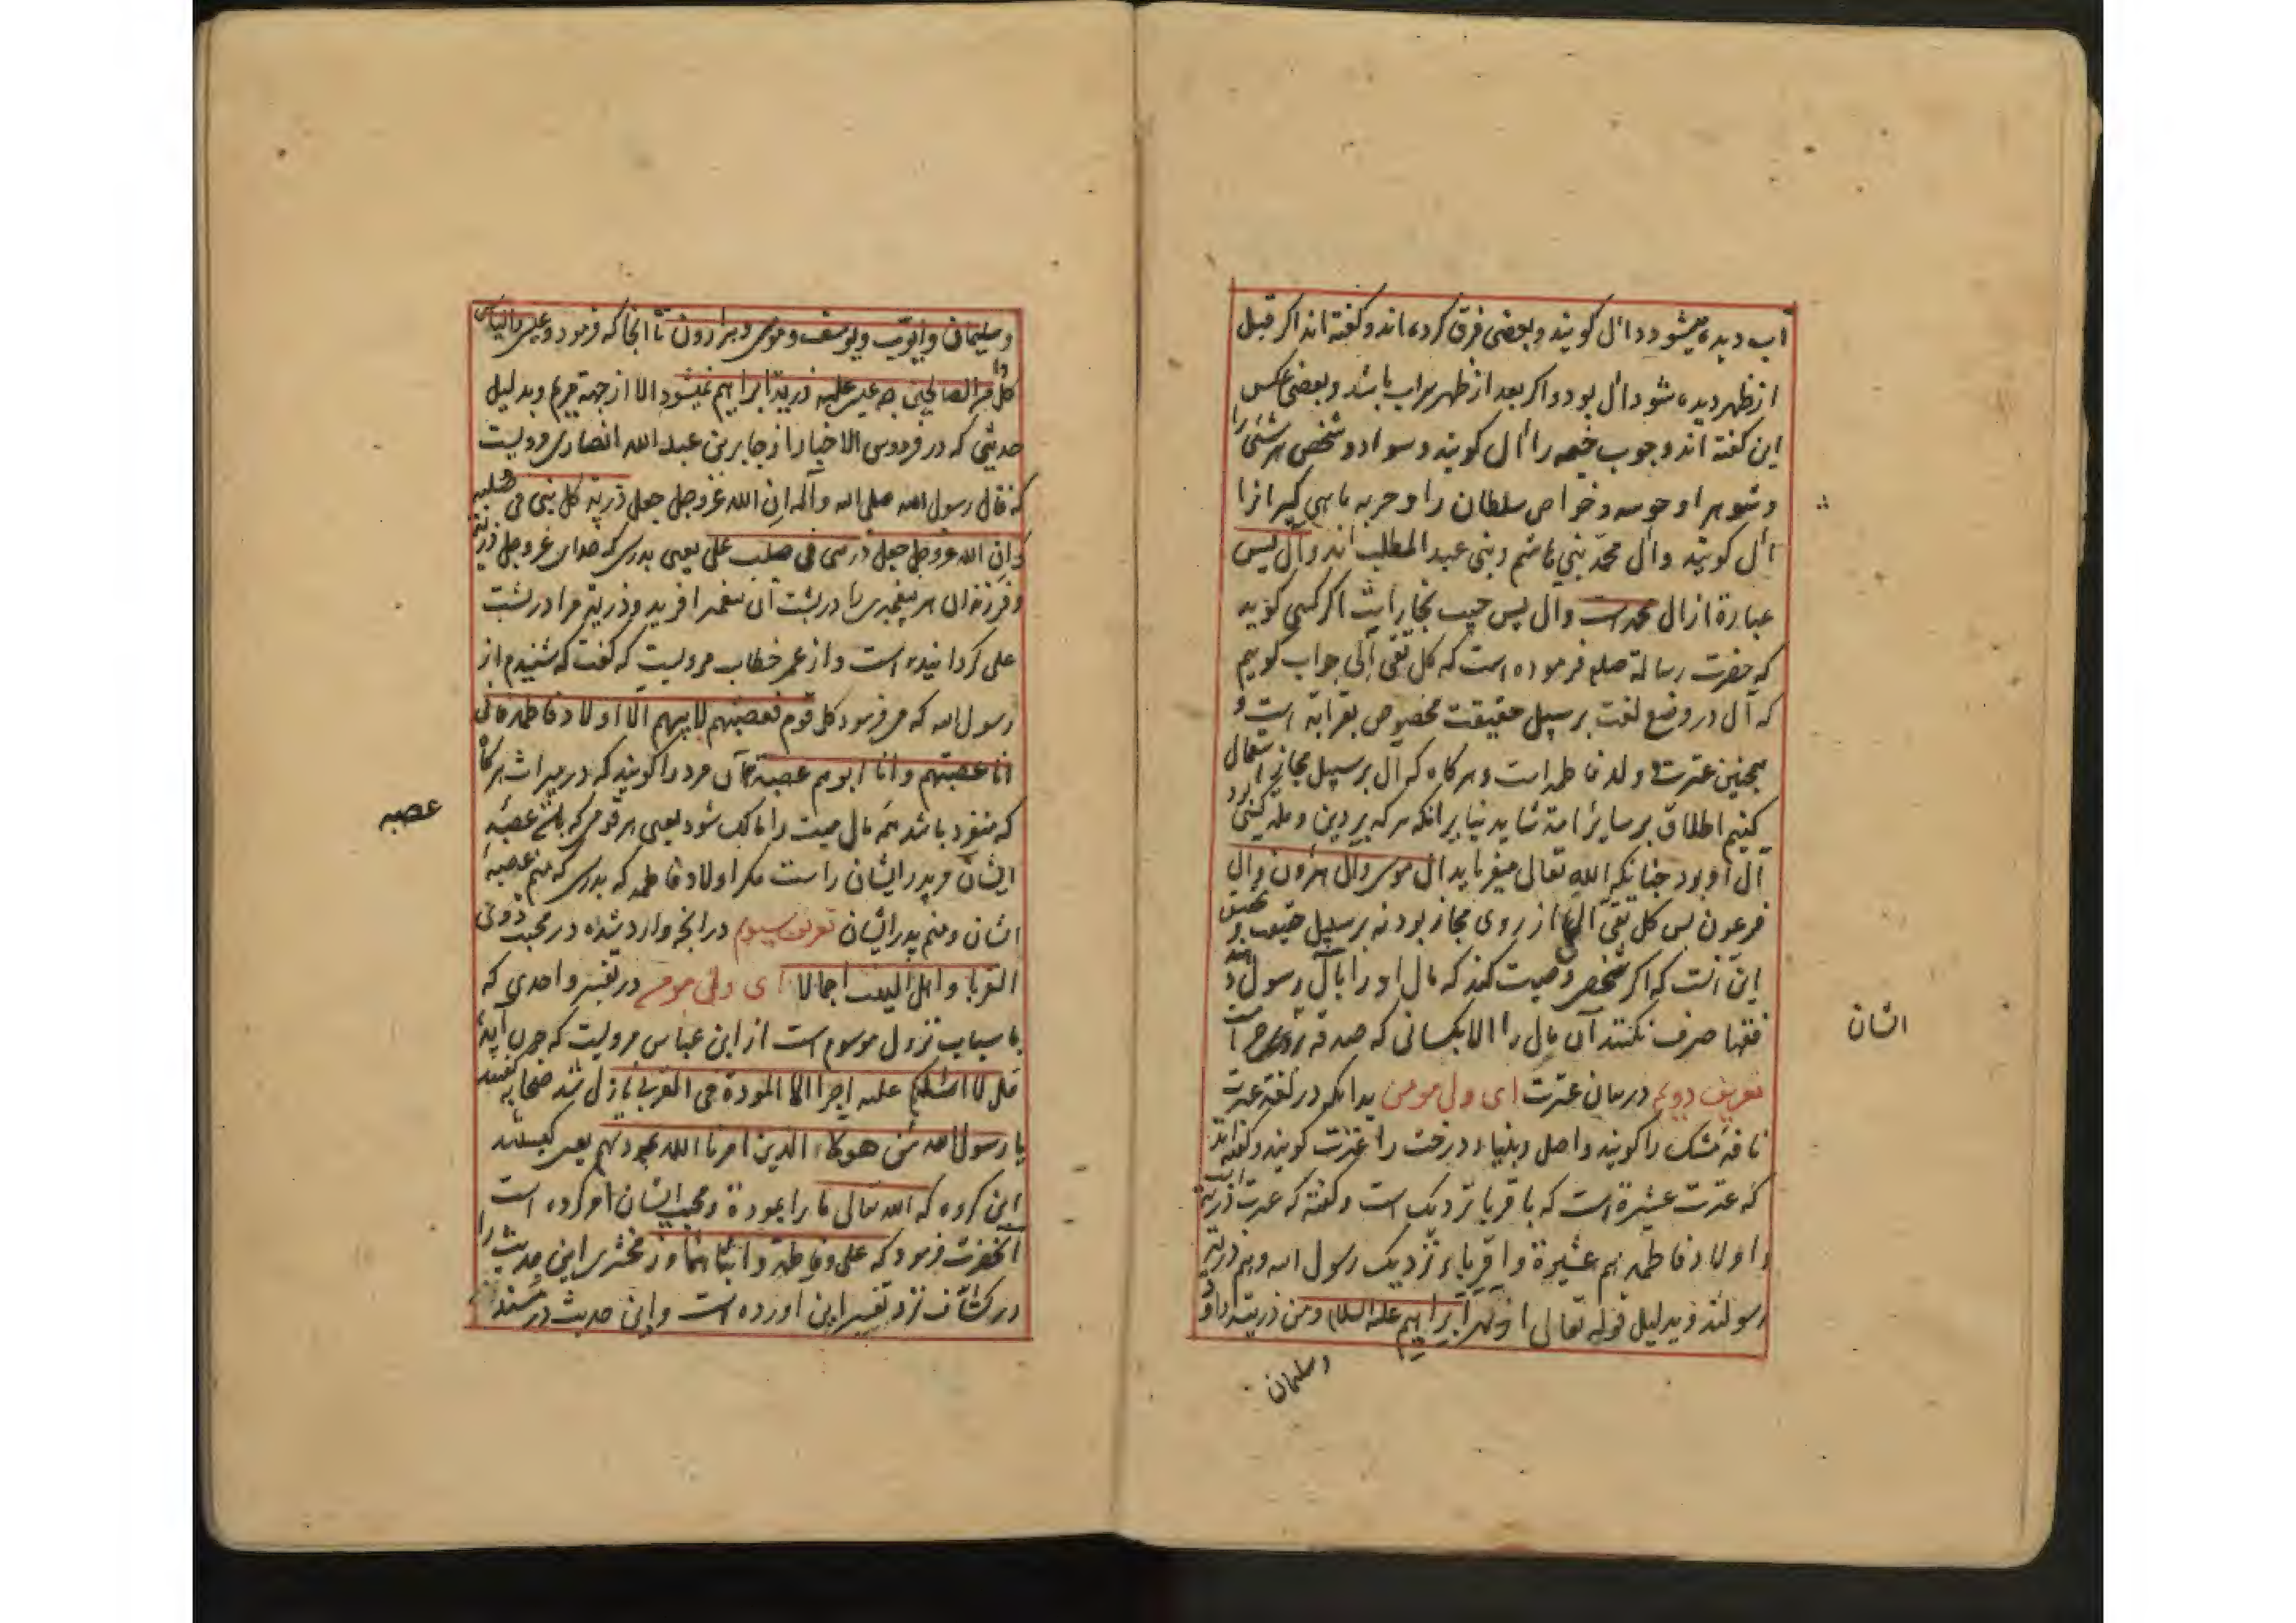 آب دیده میشود و دال کویند و بعضی فرق کرده اند و کفته اند اکر قبل
از ظهر دیده شود ال بود و اکر بعد از ظهر سراب باشد و بعضی عکس
این کفته اند و چوب خیمه را ال کویند و سواد و شخص هر شئی را
و شوهر او خواص سلطان را و حربه ماهی کیرانرا
ال کویند و ال محمد بنی هاشم و بنی عبد المطلب اند و آل یس
عبارة از ال محمد است و آل یس حبیب نجار است اکر کسی کوید
که حضرت رسالة صلعم فرموده است که کل تقی آلی جواب کوییم
که آل در وضع لغت بر سبیل حقیقت مخصوص بقرابة است و
همچنین عترت ولد فاطمه است و هر کاه که آل بر سبیل مجاز استعمال
کنیم اطلاق بر سایر امة شاید بنابر انکه هر که بر دین و ملة کسی
آل او بود چنانکه الله تعالی میفرماید ال موسی و ال هرون و ال
فرعون پس کل تقی آلی از روی مجاز بود نه بر سبیل حقیقت و
این آنست که اکر شخصی وصیت کند که مال او را بال رسول دهند
فقها صرف نکنند آن مال را الا بکسانی که صدقه بر حرام است
انشان
تعریف دویم در بیان عترت ای ولی مومن بدانکه در لغة عترت
نافه مشک را کویند و اصل و بنیاد درخت را عترت کویند و کفته اند
که عترت عشیرة است که باقربا نزدیک است و کفته که عترت ذریة
و اولاد فاطمه هم عشیرة و اقرباء نزدیک رسول الله و هم ذریة
رسولند و بدلیل قوله تعالی ابراهیم علیه السلام و من ذریته داود
و سلیمان
و سلیمان و ایوب و یوسف و موسی و هارون تا انجا که فرمود و عیسی و الیاس
کل من الصالحین چه عیسی علیه ذریة ابراهیم نمیشود الا از جهة مریم و بدلیل
حدیثی که در فردوس الاخبار از جابر بن عبد الله انصاری مرویست
که قال رسول الله صلی الله و آله ان الله عز وجل جعل ذریة کل نبی فی صلبه
و ان الله عز وجل جعل ذریتی فی صلب علی یعنی بدرستی که خدای عز وجل ذریة
و فرزندان هر پیغمبری را در پشت آن پیغمبر افرید و ذریة مرا در پشت
علی کردانیده است و از عمر خطاب مرویست که کفت که شنیدم از
رسول الله که می فرمود کل قوم فعصبتهم لابیهم الا اولاد فاطمه فانی
انا عصبتهم و انا ابوهم عصبة آن مرد را کویند که در میراث هرکاه
که منفرد باشد همه مال میت را مالک شود یعنی هر قومی که هست عصبه
عصبه
ایشان مر پدر ایشان راست مکر اولاد فاطمه که بدرستی که منم عصبه
ایشان و منم پدر ایشان تعریف سیوم در انچه وارد شده در محبت ذوی
القربا و اهل البیت اجمالا ای ولی مومن در تفسیر واحدی که
باسباب نزول موسوم است از ابن عباس مرویست که چون آیه
قل لا اسئلکم علیه اجرا الا المودة فی القربی نازل شد صحابه کفتند
یا رسول الله من هولاء الذین امرنا الله بمودتهم یعنی کیستند
این کروه که الله تعالی ما را بمودة و محبت ایشان امر کرده است
آنحضرت فرمود که علی و فاطمة و ابناهما و زمخشری این حدیث را
در کشاف نزد تفسیر این اورده است و این حدیث در مسند